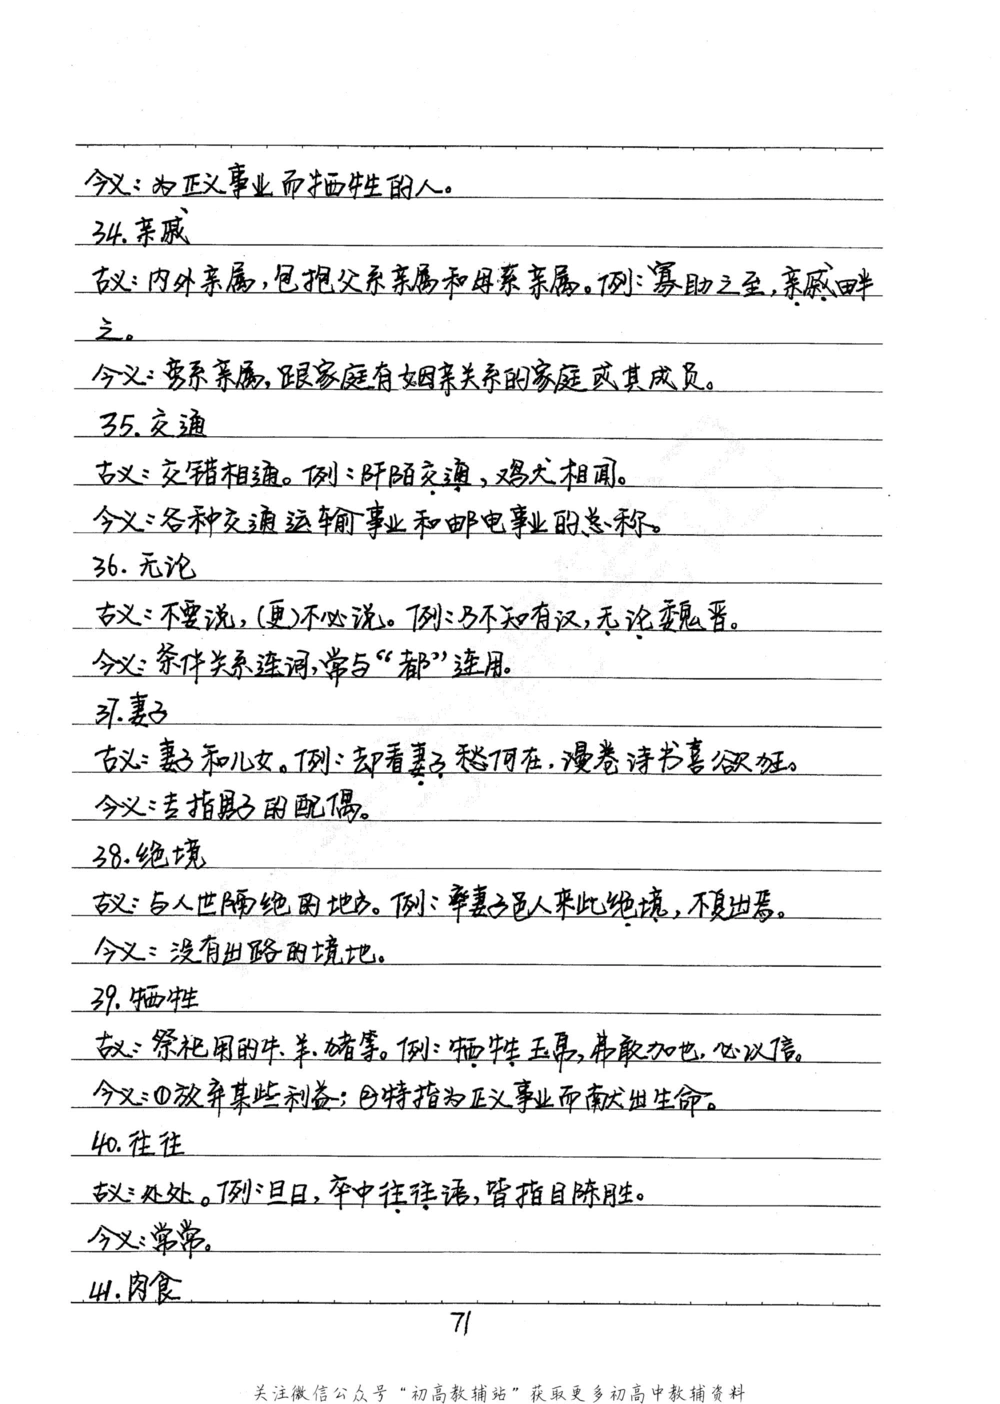 今义：为正义事业而牺牲的人。
34.亲戚
古义：内外亲属，包括父系亲属和母系亲属。例：寡助之至，亲戚畔
之。
今义：旁系亲属，跟家庭有姻亲关系的家庭或其成员。
35.交通
古义：交错相通。例：阡陌交通，鸡犬相闻。
今义：各种交通运输事业和邮电事业的总称。
36.无论
古义：不要说，(更)不必说。例：乃不知有汉，无论魏晋。
今义：条件关系连词，常与“都”连用。
37.妻子
古义：妻子和儿女。例：却看妻子愁何在，漫卷诗书喜欲狂。
今义：专指男子的配偶。
38.绝境
古义：与人世隔绝的地方。例：率妻子邑人来此绝境，不复出焉。
今义：没有出路的境地。
39.牺牲
古义：祭祀用的牛、羊、猪等。例：牺牲玉帛，弗敢加也，必以信。
今义：①放弃某些利益；②特指为正义事业而献出生命。
40.往往
古义：处处。例：旦日，卒中往往语，皆指目陈胜。
今义：常常。
41.肉食
71
关注微信公众号“初高教辅站”获取更多初高中教辅资料